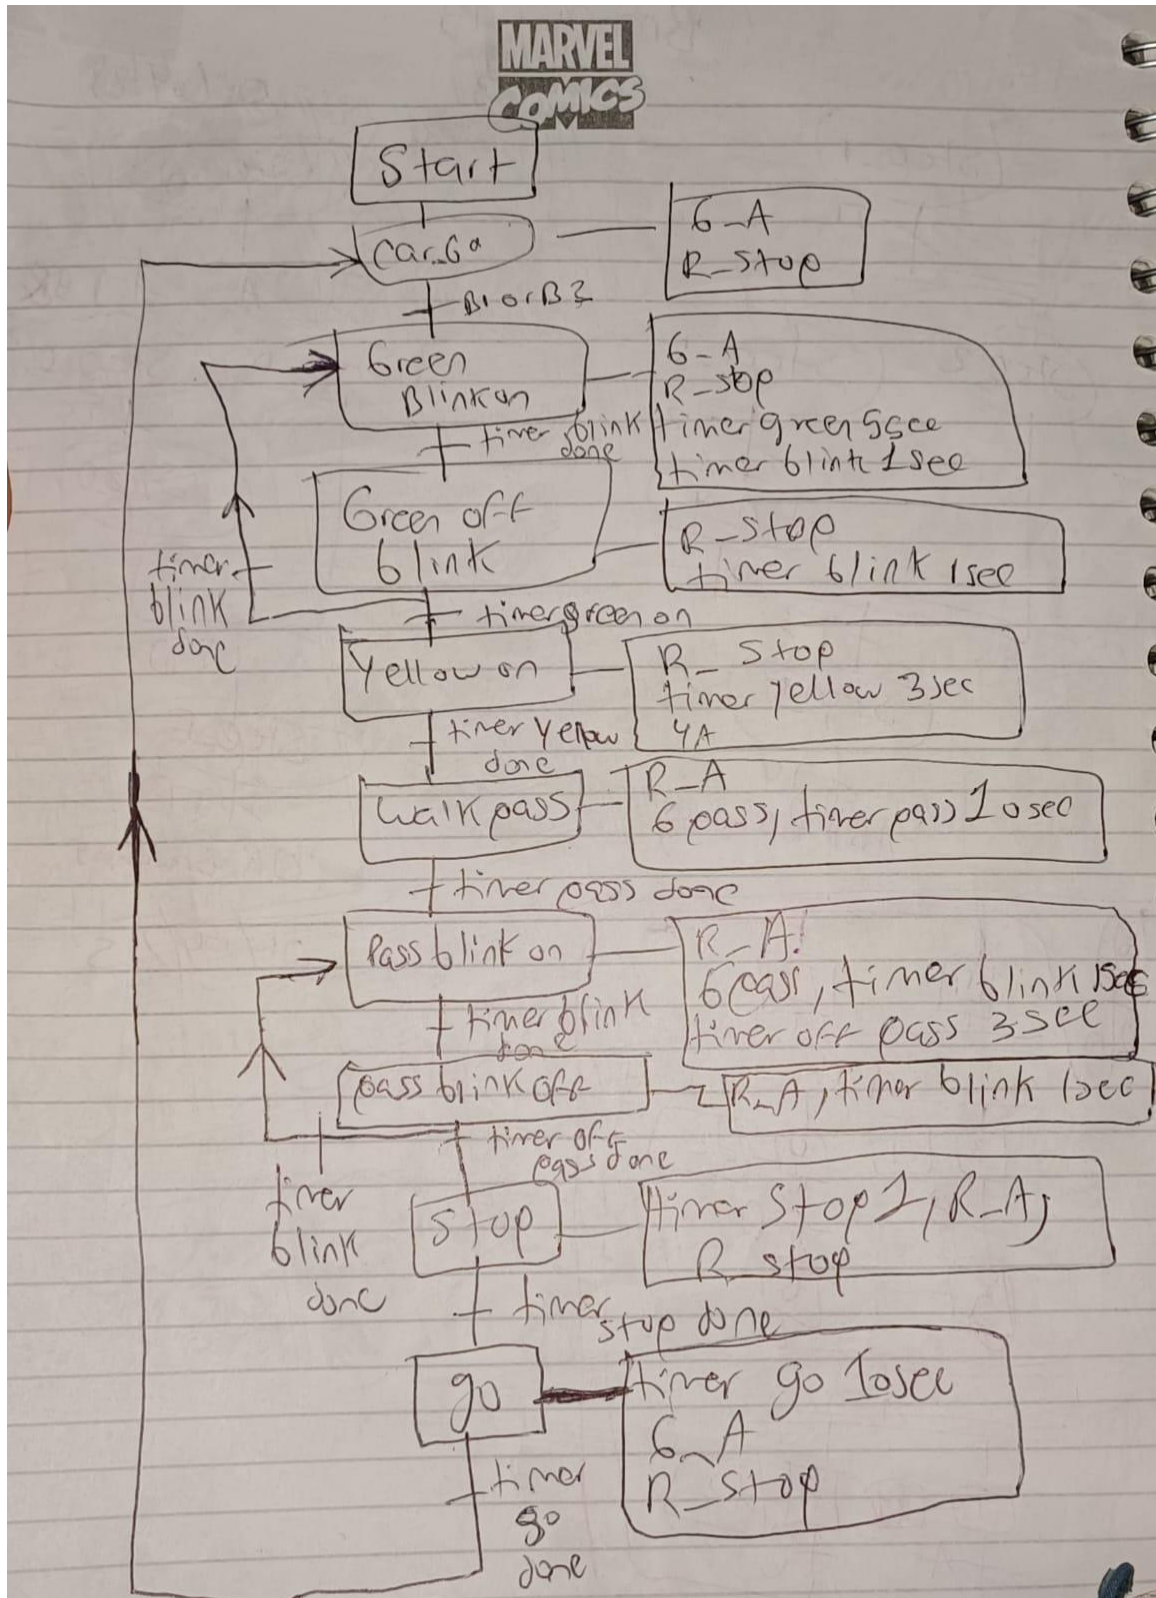 MARVEL
COMICS
Start
Car_Go
G_A
R_Stop
B1 or B2
Green
Blink on
G_A
R_stop
timer green 5sec
timer blink 1sec
timer blink
done
Green off
blink
R_Stop
timer blink 1sec
timer
blink
done
timer green on
Yellow on
R_Stop
timer yellow 3sec
YA
timer Yellow
done
Walk pass
R_A
G pass, timer pass 10sec
timer pass done
Pass blink on
R_A.
G pass, timer blink 1sec
timer off pass 3sec
timer blink
done
pass blink off
R_A, timer blink 1sec
timer off
pass done
timer
blink
done
Stop
timer Stop 1, R_A,
R_stop
timer
stop done
go
timer go 10sec
G_A
R_stop
timer
go
done